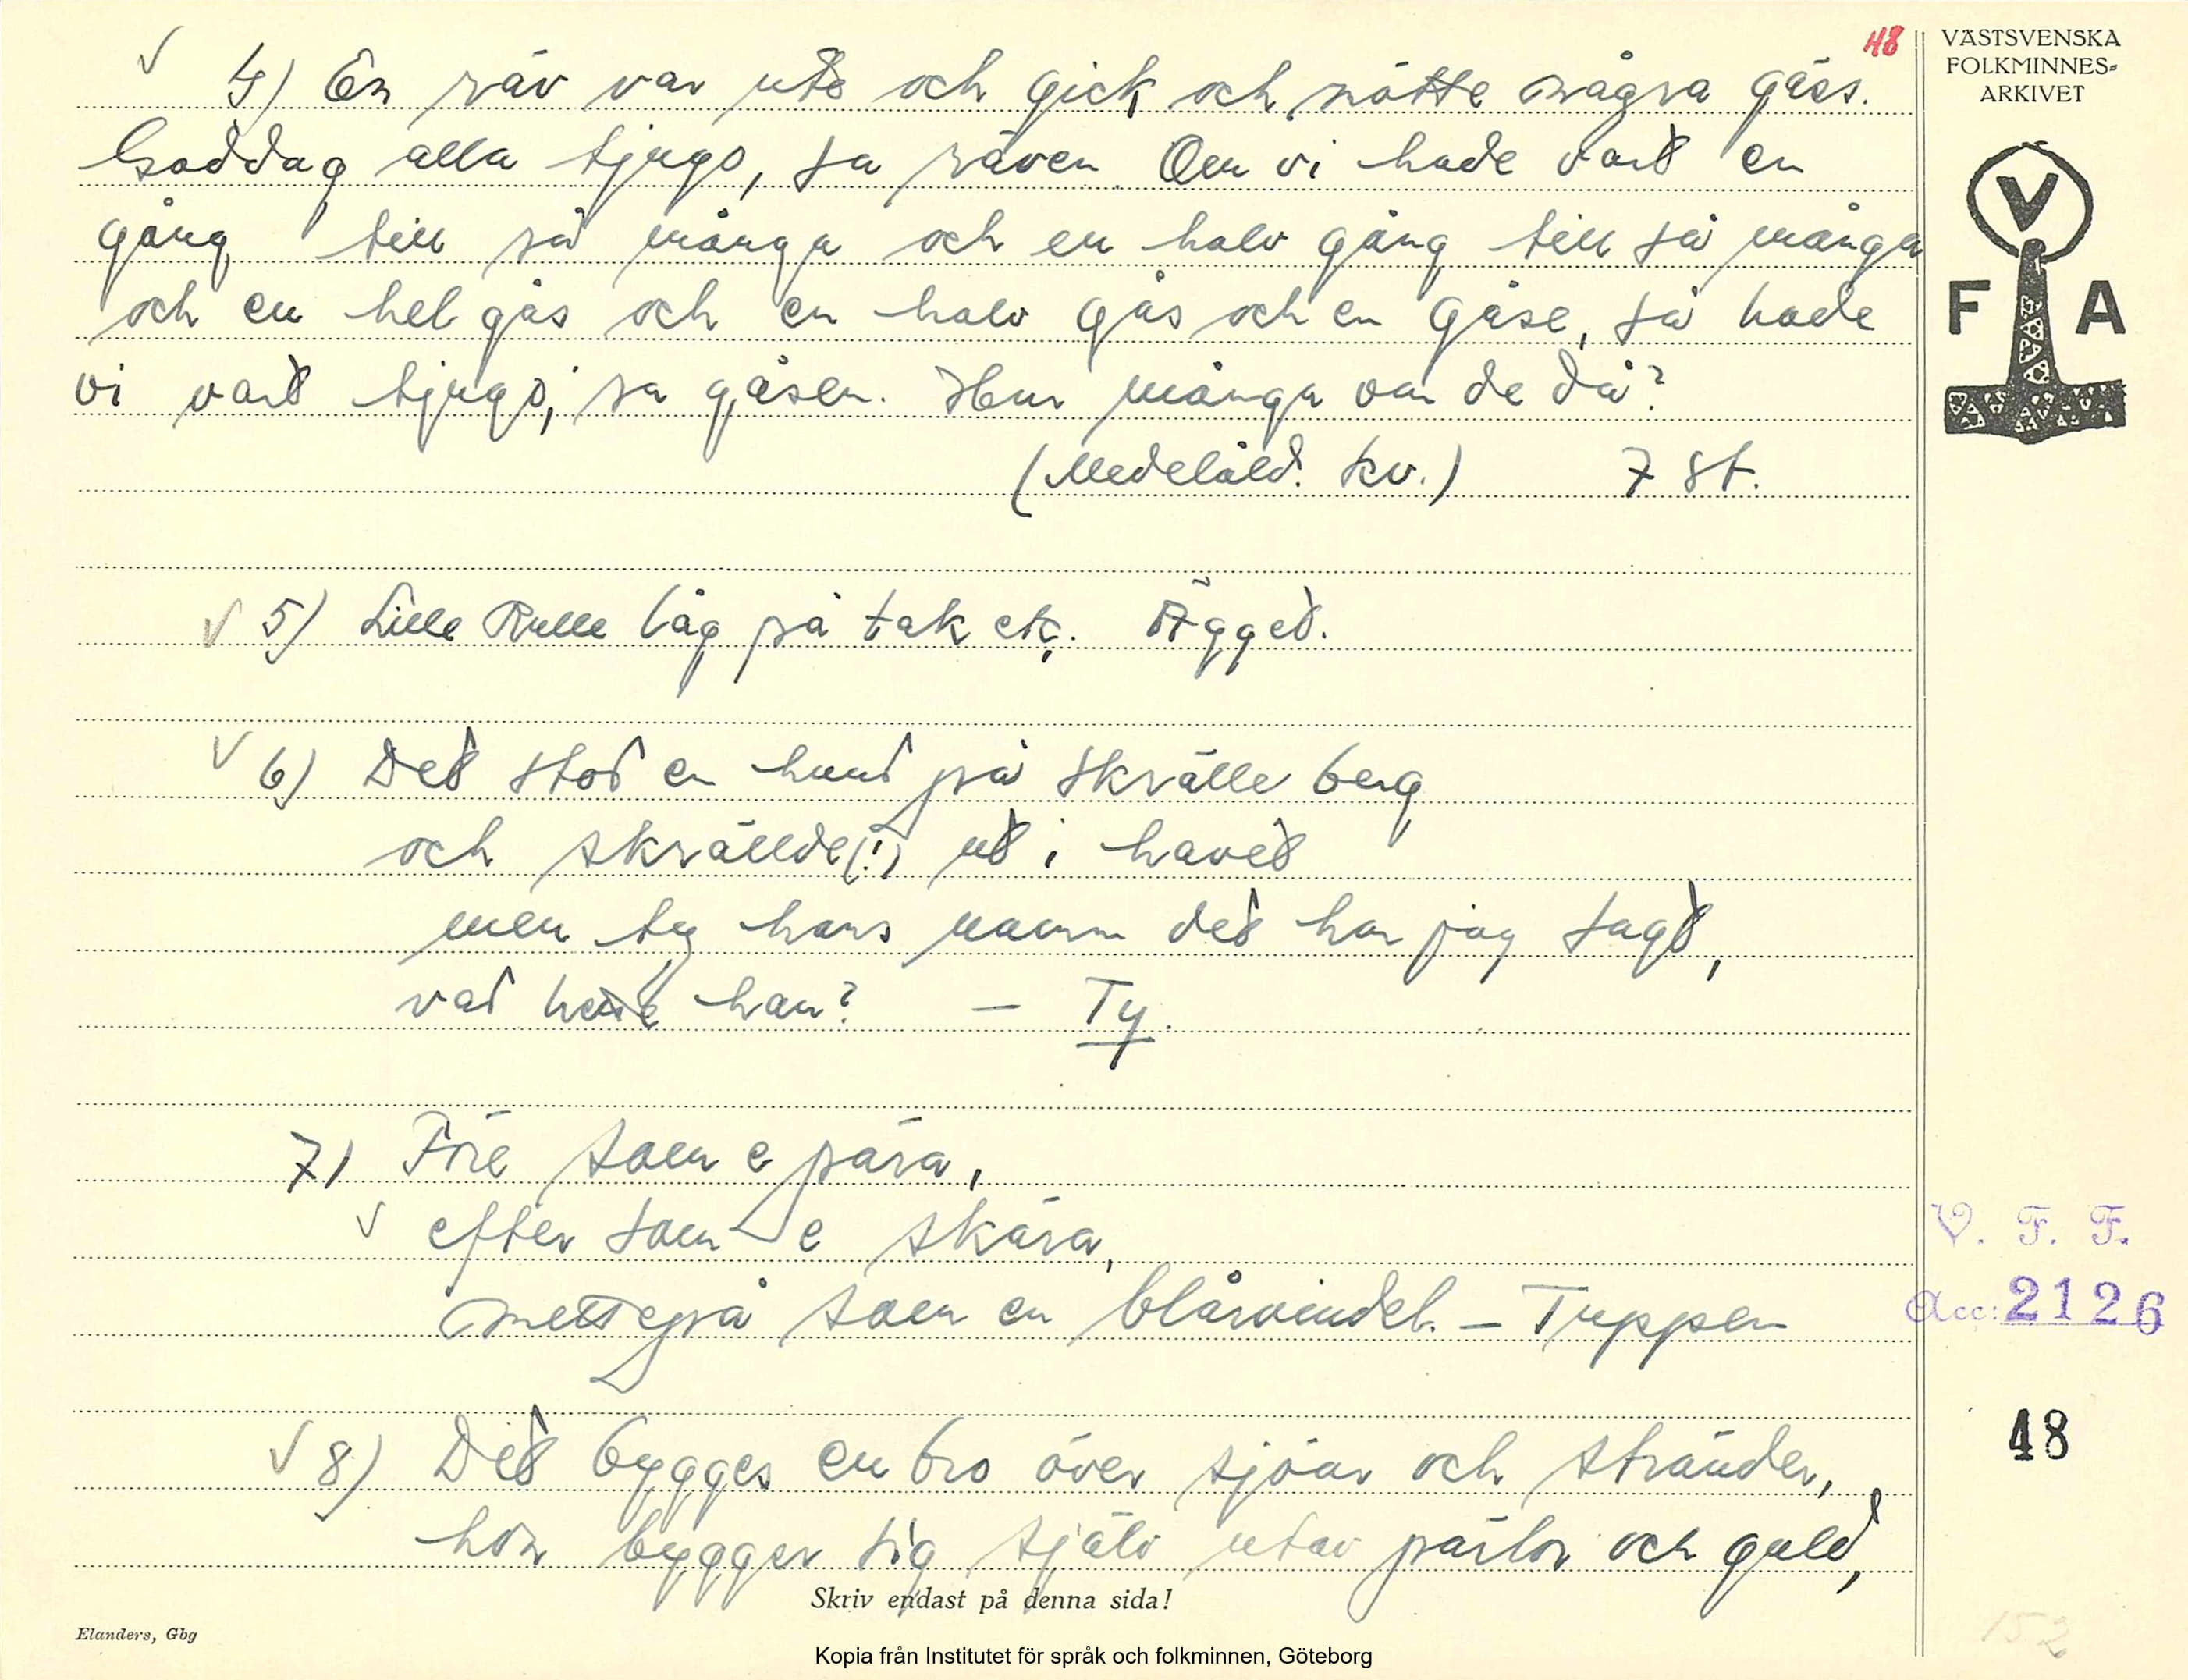 48
VÄSTSVENSKA
FOLKMINNES-
ARKIVET
V
F A
4) En räv var ute och gick och mötte några gäss.
Goddag alla tjugo, sa räven. Om vi hade vart en
gång till så många och en halv gång till så många
och en hel gås och en halv gås och en gåse, så hade
vi vart tjugo, sa gåsen. Hur många var de då?
(Medelåld. kv.) 7 st.
5) Lille Rulle låg på tak etc. Ägget.
6) Det stod en hund på skrälle berg
och skrällde(!) ut i havet
men ty hans namn det har jag sagt,
vad hette han? – Ty.
7) Före som e pära,
efter som e skära,
mettepå som en blårvindel. – Tuppen
8) Det bygges en bro över sjöar och stränder,
hon bygger sig själv utav pärlor och guld,
V. F. F.
Acc: 2126
48
152
Skriv endast på denna sida!
Elanders, Gbg
Kopia från Institutet för språk och folkminnen, Göteborg